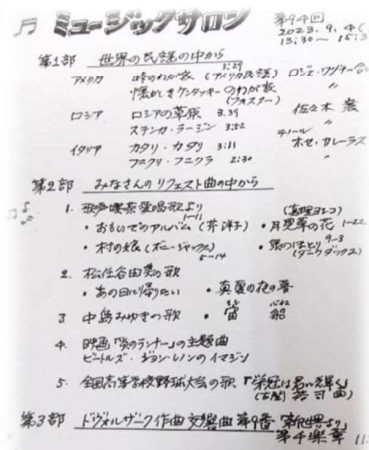 ミュージックサロン
第94回
2023.9.4(
13:30〜15:3
第1部 世界の民謡の中から
アメリカ 峠のわが家(アメリカ民謡) ロジェ・ワグナー合
懐かしきケンタッキーのわが家 〃
(フォスター)
ロシア ロシアの草原 3.39 佐々木
ステンカ・ラージン 3:52 〃
イタリア カタリ・カタリ 3:11 テノール ホセ・カレーラス
フニクリ・フニクラ 2:30 〃
第2部 みなさんのリクエスト曲の中から
1. 歌声喫茶愛唱歌より
・おもいでのアルバム(芹洋子) ・月見草の花 1-22
・村の娘(ボニージャックス) (ダークダックス)
5-14
2. 松任谷由美の歌
・あの日に帰りたい ・真夏の夜の夢
3 中島みゆきの歌 ・宙船
4. 映画「炎のランナー」の主題曲
ビートルズ・ジョン・レノンのイマジン
5. 全国高等学校野球大会の歌「栄冠は君に輝く」
(古関裕而曲)
第3部 ドヴォルザーク作曲 交響曲第9番「新世界より」
第4楽章 11